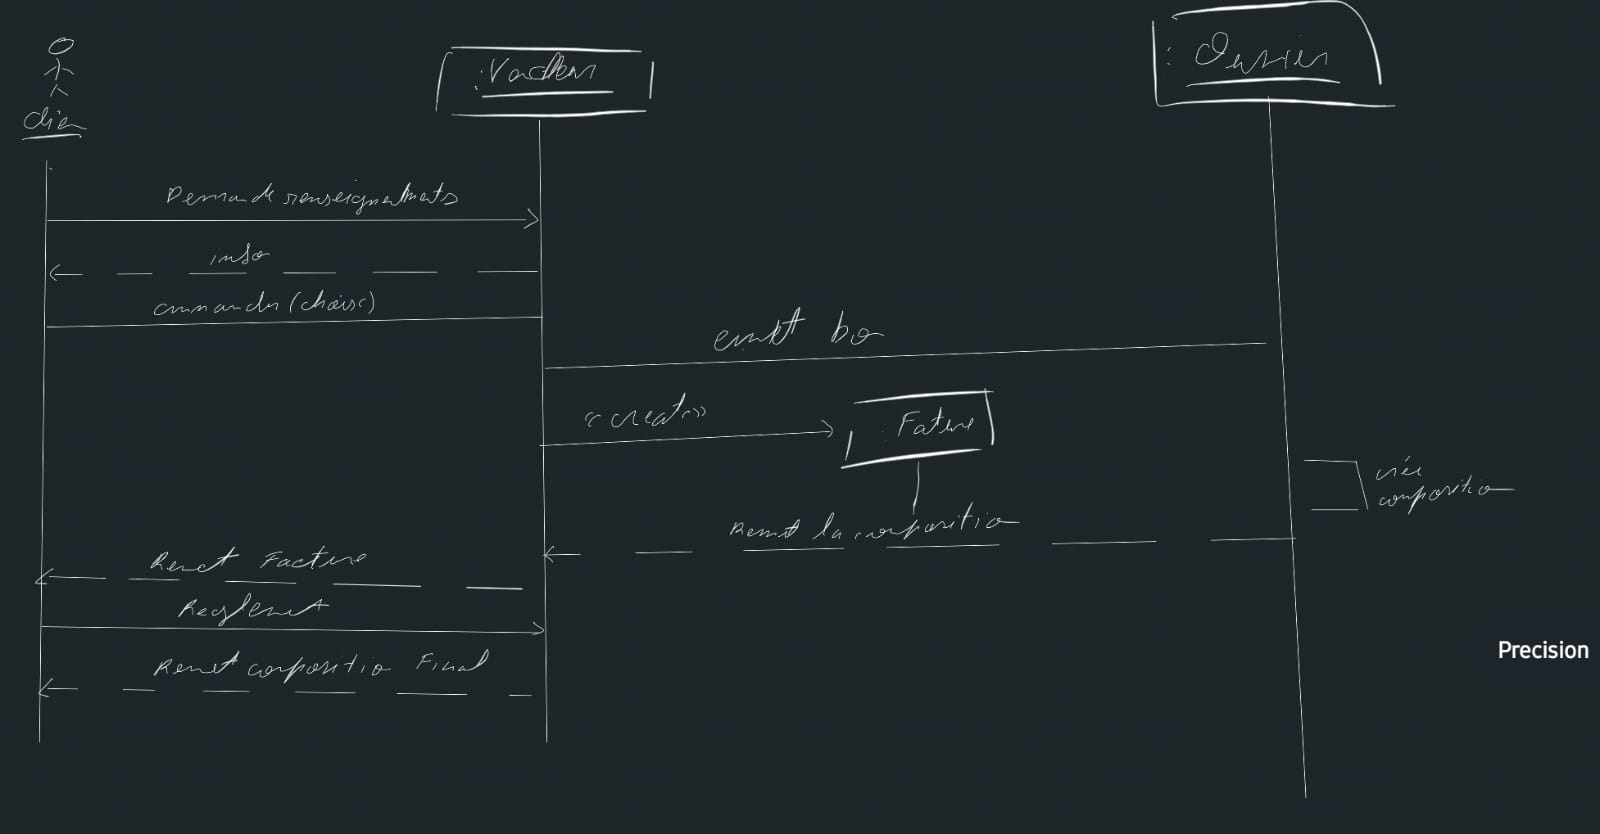 : Ouvrier
Demande renseignements
info
commander (choix)
emet bo
« create »
: Fature
créer
composition
Remet la composition
Remet Facture
Reglemet
Remet compositio Final
Precision